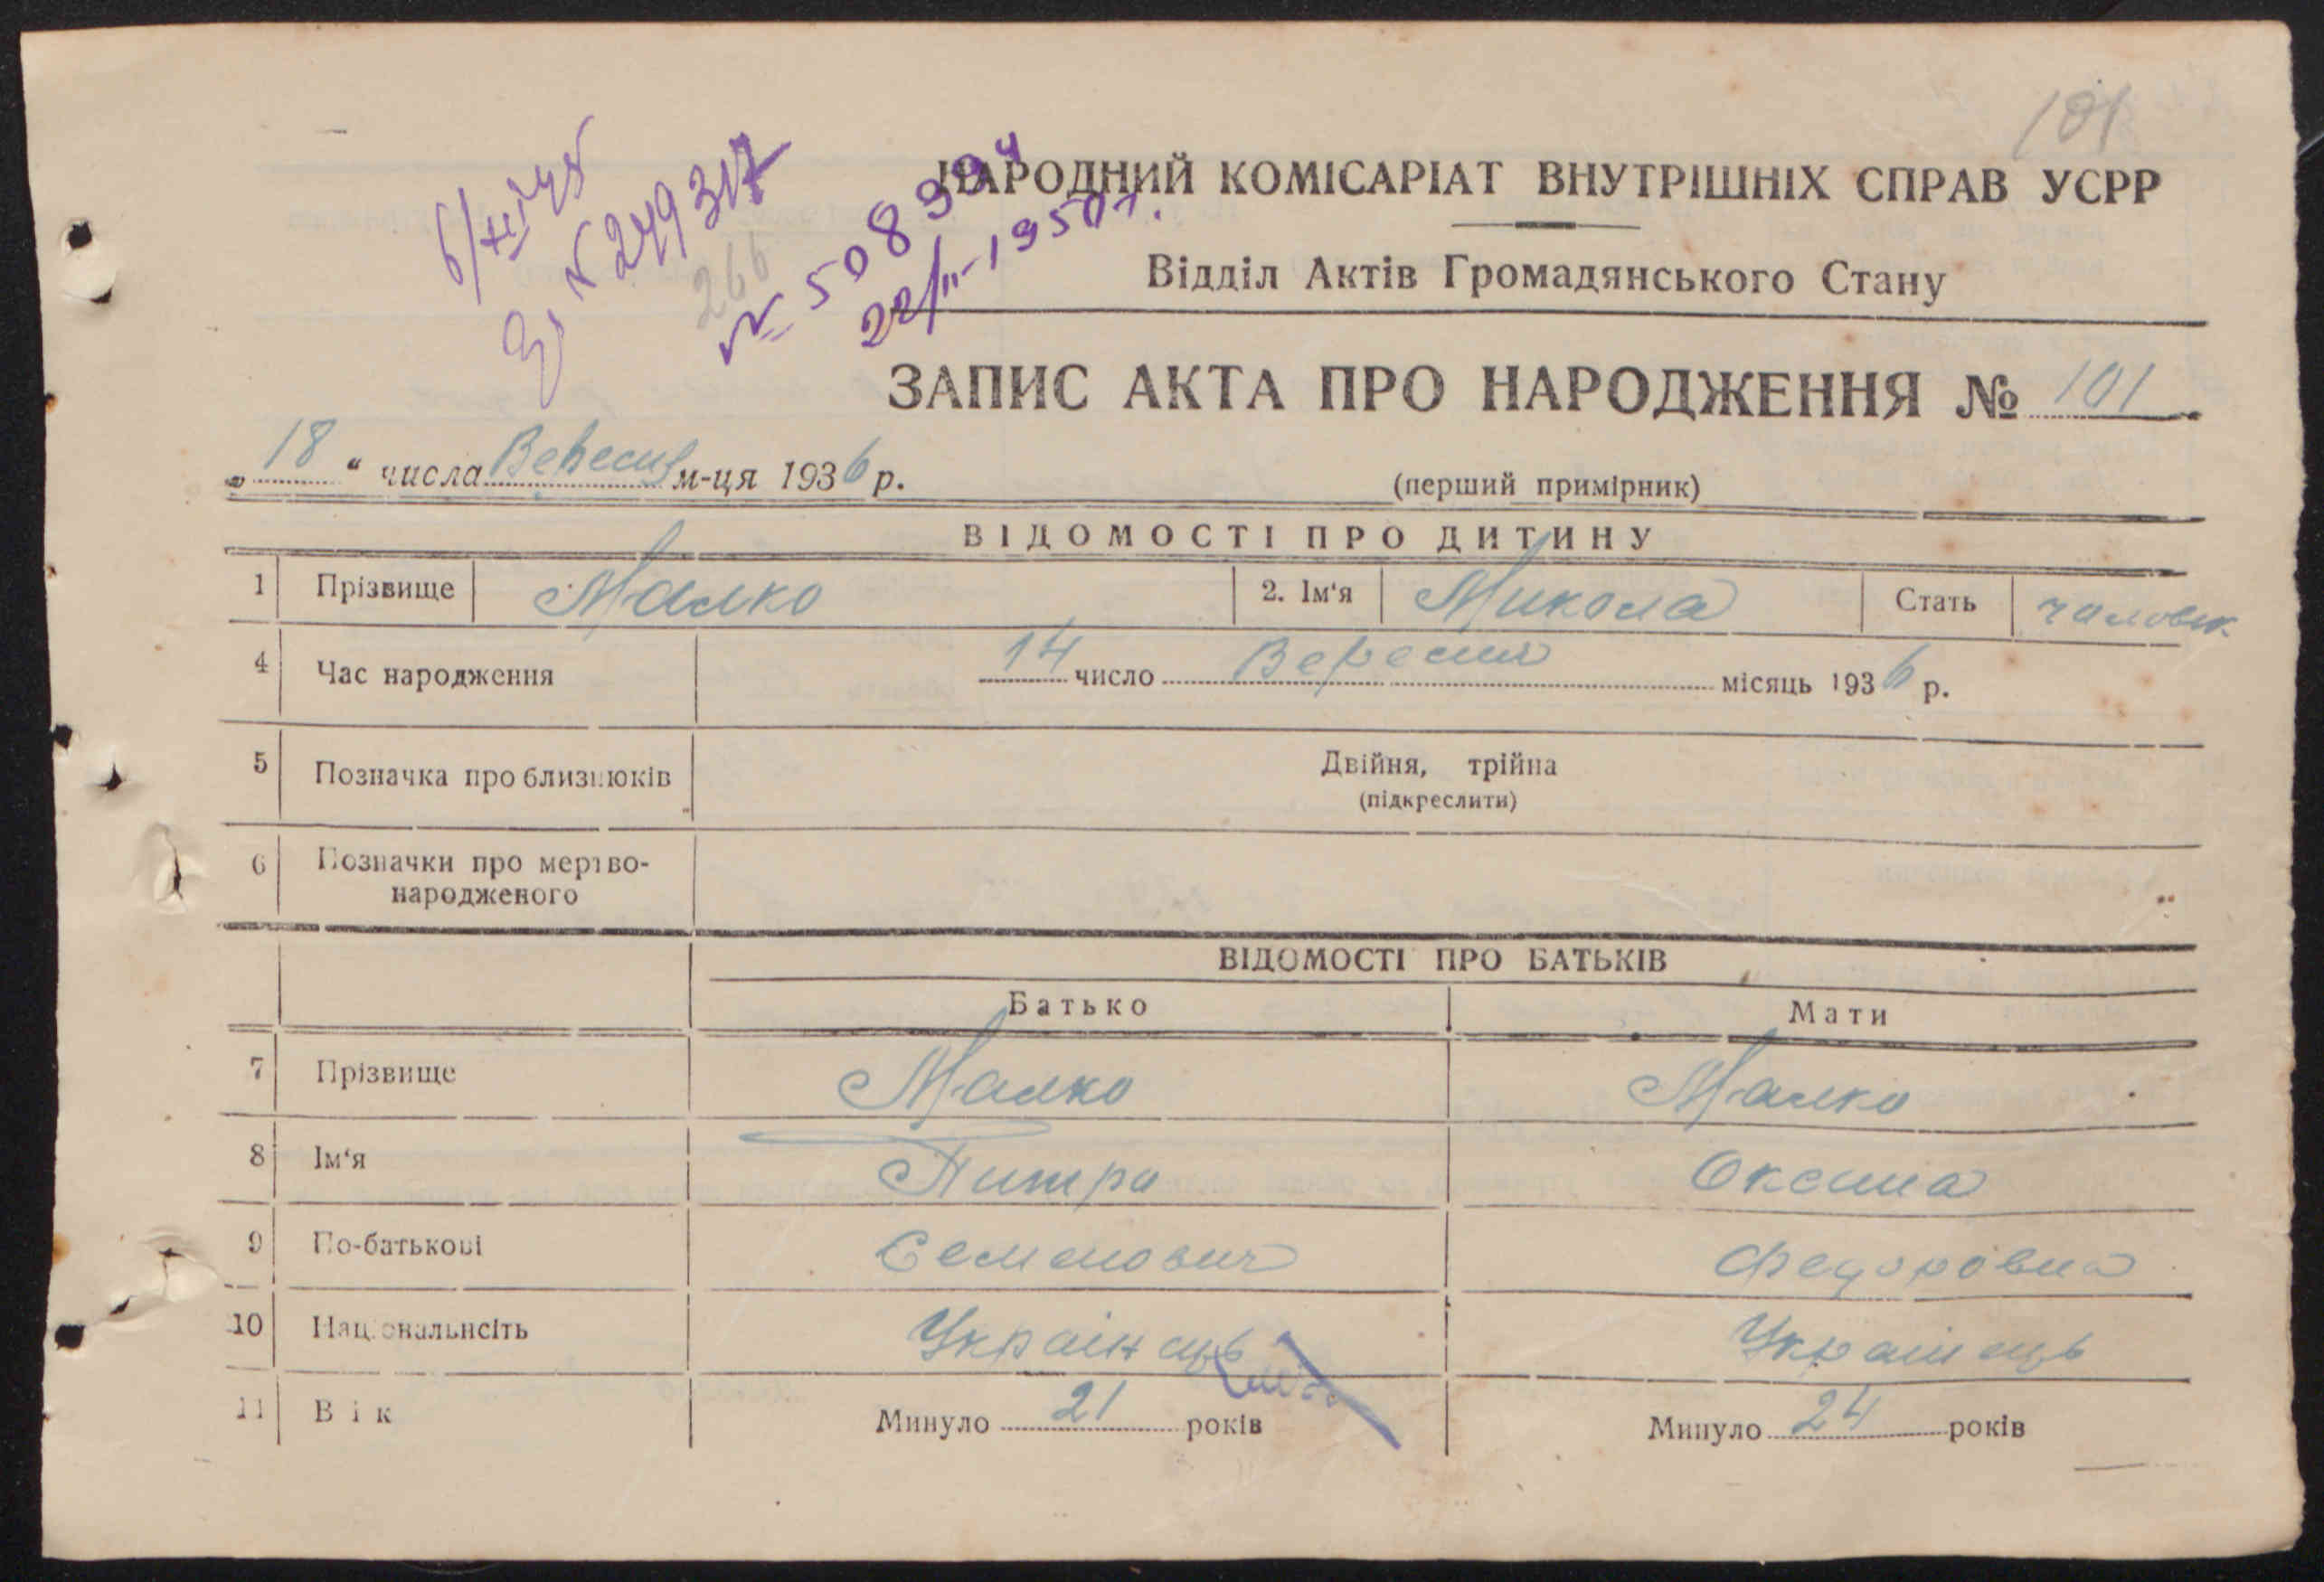 101
№ 249317
266
№ 508994
22/II-1950г.
НАРОДНИЙ КОМІСАРІАТ ВНУТРІШНІХ СПРАВ УСРР
Відділ Актів Громадянського Стану
ЗАПИС АКТА ПРО НАРОДЖЕННЯ № 101
„ 18 “ числа Вересня м-ця 1936 р.
(перший примірник)
ВІДОМОСТІ ПРО ДИТИНУ
1 Прізвище Малко 2. Ім‘я Микола Стать чаловік
4 Час народження 14 число Вересня місяць 1936 р.
5 Позначка про близнюків Двійня, трійна
(підкреслити)
6 Позначки про мертво-
народженого
ВІДОМОСТІ ПРО БАТЬКІВ
Батько Мати
7 Прізвище Малко Малко
8 Ім‘я Питро Оксана
9 По-батькові Семенович Федоровна
10 Національнсіть Українець Українець
11 Вік Минуло 21 років Минуло 24 років